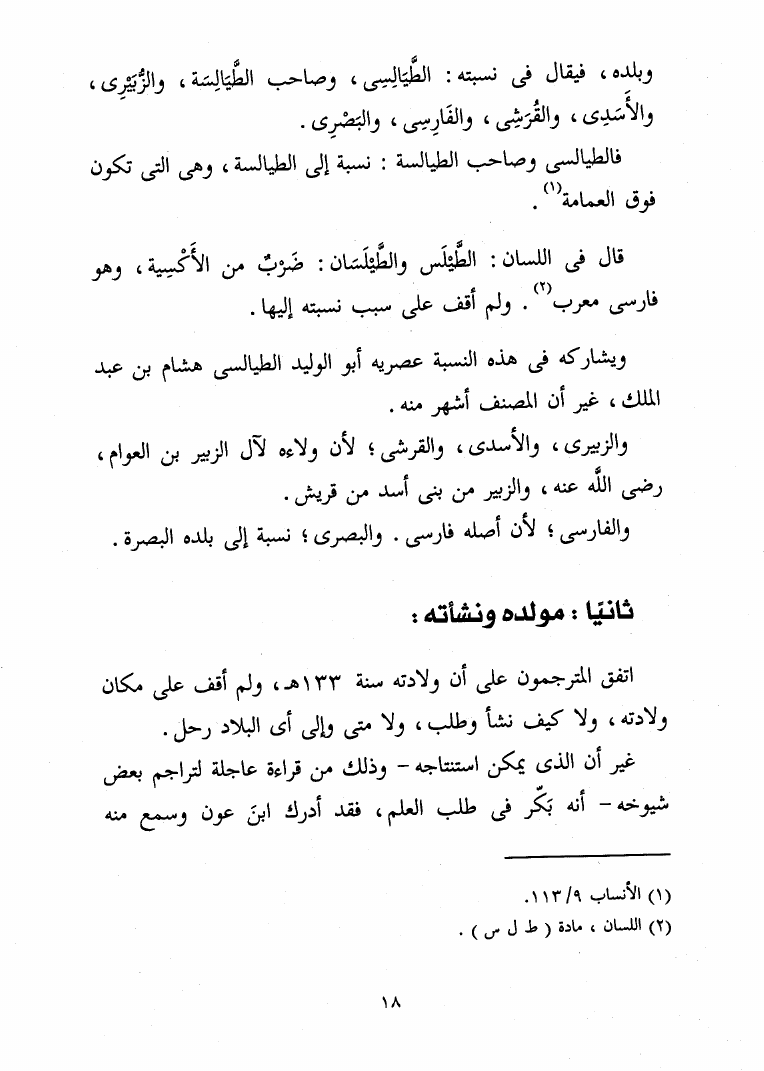 وبلده ، فيقال فى نسبته : الطَّيَالِسِى ، وصاحب الطَّيَالِسَة ، والزُّبَيْرِى ،
والأَسَدِى ، والقُرَشِى ، والفَارِسِى ، والبَصْرِى .
فالطيالسى وصاحب الطيالسة : نسبة إلى الطيالسة ، وهى التى تكون
فوق العمامة(١) .
قال فى اللسان : الطَّيْلَس والطَّيْلَسَان : ضَرْبٌ من الأَكْسِية ، وهو
فارسى معرب(٢) . ولم أقف على سبب نسبته إليها .
ويشاركه فى هذه النسبة عصريه أبو الوليد الطيالسى هشام بن عبد
الملك ، غير أن المصنف أشهر منه .
والزبيرى ، والأسدى ، والقرشى ؛ لأن ولاءه لآل الزبير بن العوام ،
رضى اللَّه عنه ، والزبير من بنى أسد من قريش .
والفارسى ؛ لأن أصله فارسى . والبصرى ؛ نسبة إلى بلده البصرة .
ثانيًا : مولده ونشأته :
اتفق المترجمون على أن ولادته سنة ١٣٣هـ ، ولم أقف على مكان
ولادته ، ولا كيف نشأ وطلب ، ولا متى وإلى أى البلاد رحل .
غير أن الذى يمكن استنتاجه – وذلك من قراءة عاجلة لتراجم بعض
شيوخه – أنه بَكَّر فى طلب العلم ، فقد أدرك ابنَ عون وسمع منه
(١) الأنساب ٩/ ١١٣.
(٢) اللسان ، مادة ( ط ل س ) .
١٨